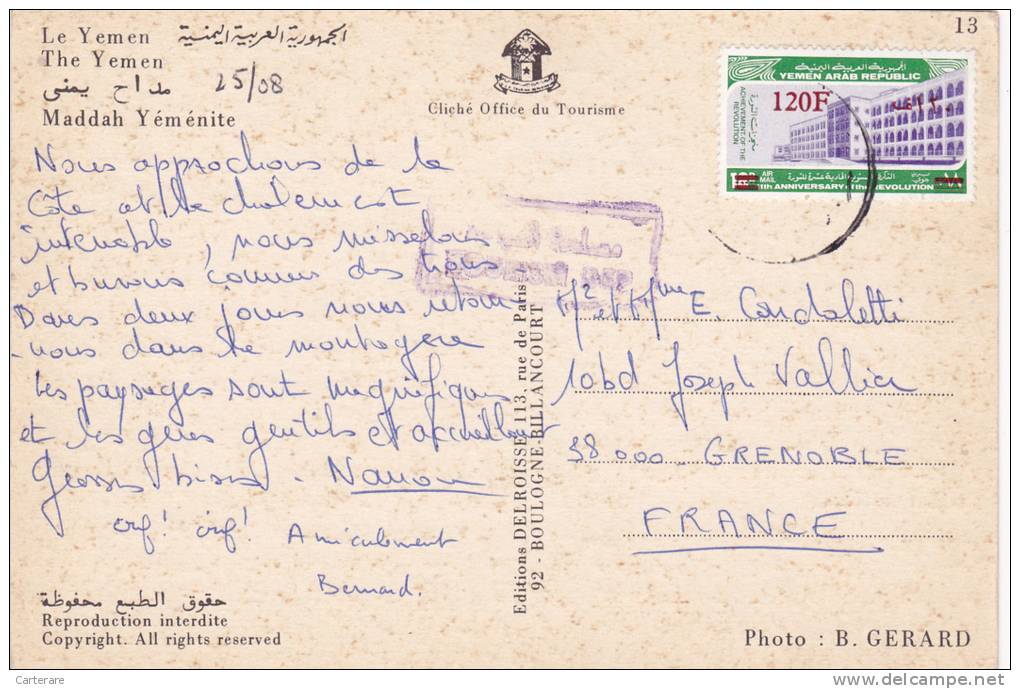 Le Yemen الجمهورية العربية اليمنية
The Yemen
مداح يمنى 25/08
Maddah Yéménite
Cliché Office du Tourisme
13
الجمهورية العربية اليمنية
YEMEN ARAB REPUBLIC
120F
ACHIEVEMENT OF THE REVOLUTION
AIR MAIL
11th ANNIVERSARY of the REVOLUTION
Nous approchons de la
Côte et la chaleur est
intenable, nous
et buvons comme des trous.
Dans deux jours nous retour
-nous dans la montagne
Les paysages sont magnifiques
et les gens gentils et accueillant
Grosses bises -
ouf! ouf! Amicalement
Bernard.
Editions DELROISSE, 113, rue de Paris
92 - BOULOGNE-BILLANCOURT
et Mme E.
10 bd Joseph Vallier
38000 - GRENOBLE
FRANCE
حقوق الطبع محفوظة
Reproduction interdite
Copyright. All rights reserved
Photo : B. GERARD
Carterare
delcampe.net